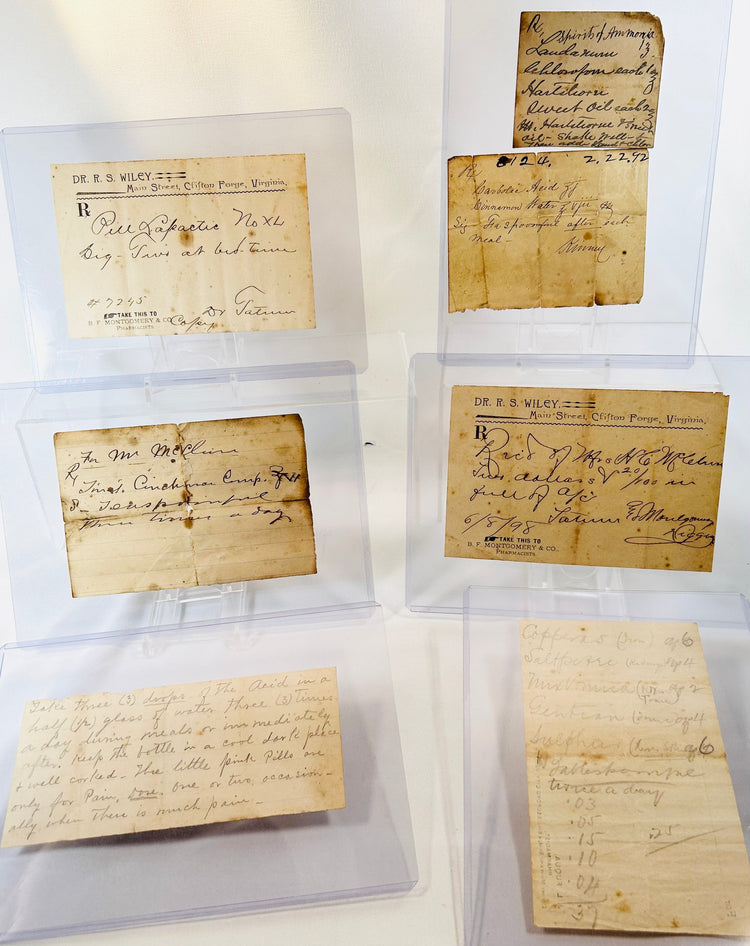 DR. R. S. WILEY
Main Street, Clifton Forge, Virginia,
R
Pill Lapactic No XL
Sig - Two at bed time
# 7245
TAKE THIS TO
B. F. MONTGOMERY & CO.
PHARMACISTS.
Copy Dr Tatum
R Spirits of Ammonia
Laudanum
Chloroform each 1
Hartshorn
Sweet Oil each 2
Mx. Hartshorne & Sweet
oil - Shake Well -
then add
R 8124. 2.22.92
Carbolic Acid
Cinnamon Water
Sig - Teaspoonful after each
meal -
For Mr McClure
R
Tinct. Cinchonae Comp.
S - Teaspoonful
three times a day
DR. R. S. WILEY
Main Street, Clifton Forge, Virginia,
R
Rec'd of Mrs H C McClure
Two dollars & 20/100 in
full of a/c
6/8/98 Tatum
TAKE THIS TO
B. F. MONTGOMERY & CO.
PHARMACISTS.
Take three (3) drops of the Acid in a
half (1/2) glass of water three (3) times
a day during meals or immediately
after, keep the bottle in a cool dark place
& well corked - The little pink Pills are
only for Pain, Dose, one or two, occasion-
ally when there is much pain -
Copperas (Iron) 6
Saltpetre 4
Nux Vomica 2
Gentian 4
Sulphur 6
Tablespoonful
twice a day
.03
.05
.15 .25
.10
.04